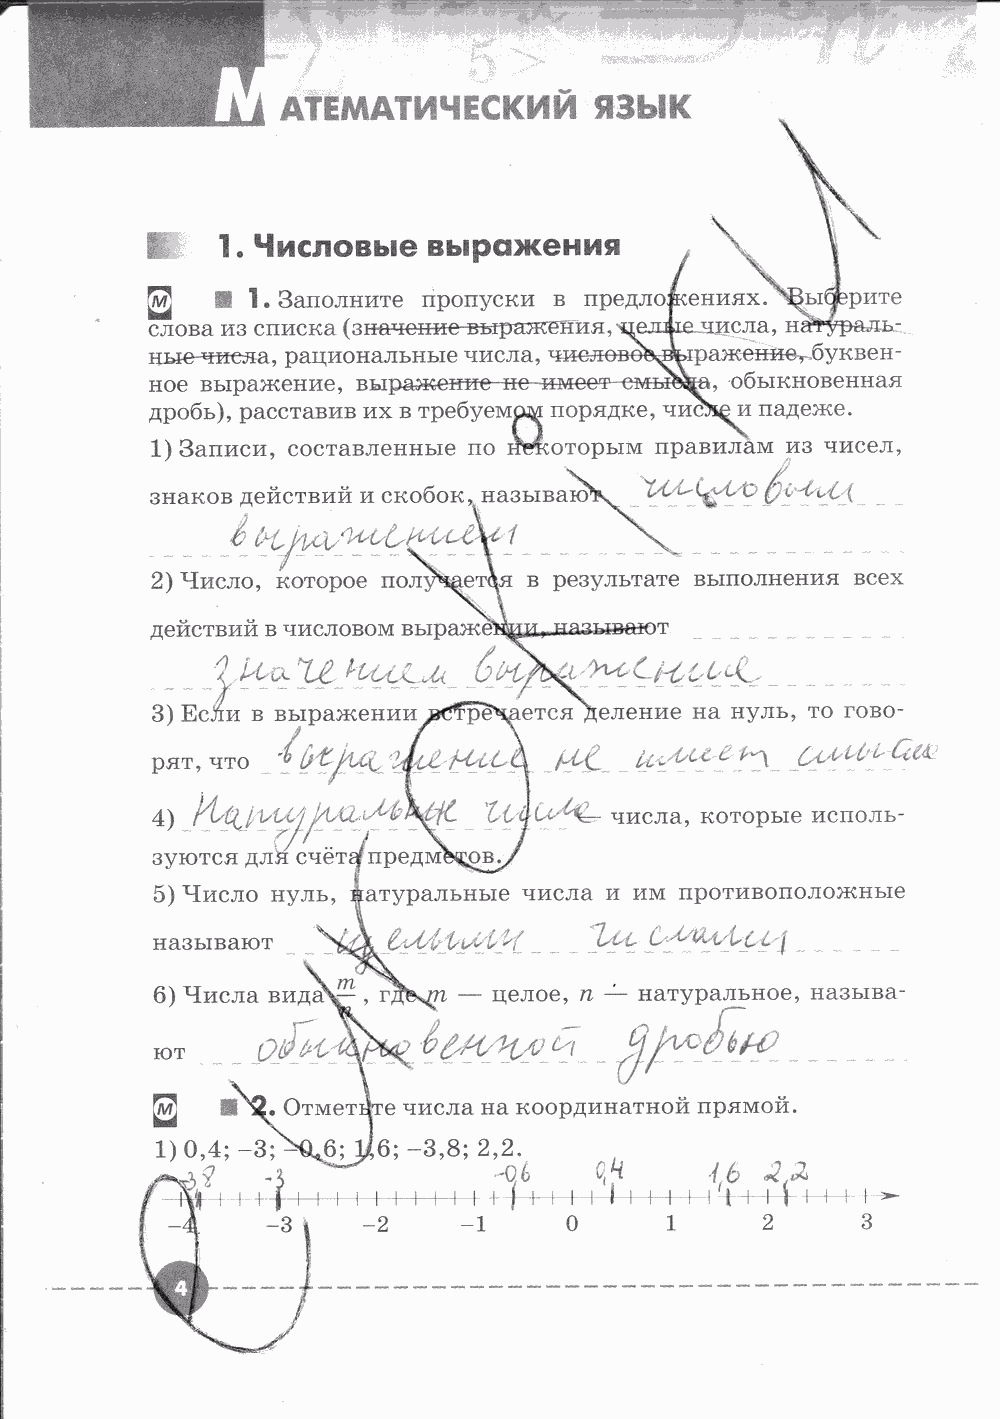 МАТЕМАТИЧЕСКИЙ ЯЗЫК
1. Числовые выражения
М 1. Заполните пропуски в предложениях. Выберите
слова из списка (значение выражения, целые числа, натураль-
ные числа, рациональные числа, числовое выражение, буквен-
ное выражение, выражение не имеет смысла, обыкновенная
дробь), расставив их в требуемом порядке, числе и падеже.
1) Записи, составленные по некоторым правилам из чисел,
знаков действий и скобок, называют числовым
выражением
2) Число, которое получается в результате выполнения всех
действий в числовом выражении, называют
значением выражение
3) Если в выражении встречается деление на нуль, то гово-
рят, что выражение не имеет смысла
4) Натуральные числа — числа, которые исполь-
зуются для счёта предметов.
5) Число нуль, натуральные числа и им противоположные
называют целыми числами
6) Числа вида m/n, где m — целое, n — натуральное, называ-
ют обыкновенной дробью
М 2. Отметьте числа на координатной прямой.
1) 0,4; –3; –0,6; 1,6; –3,8; 2,2.
-3,8 -3 -0,6 0,4 1,6 2,2
–4 –3 –2 –1 0 1 2 3
4